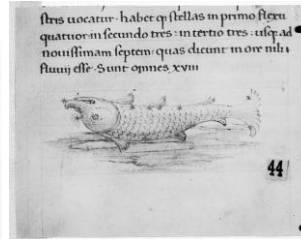 stris uocatur· habet q; stellas in primo flexu
quatuor· in secundo tres· in tertio tres· usq; ad
nouissimam septem· quas dicunt in ore nili
fluuii esse· Sunt omnes xviii
44